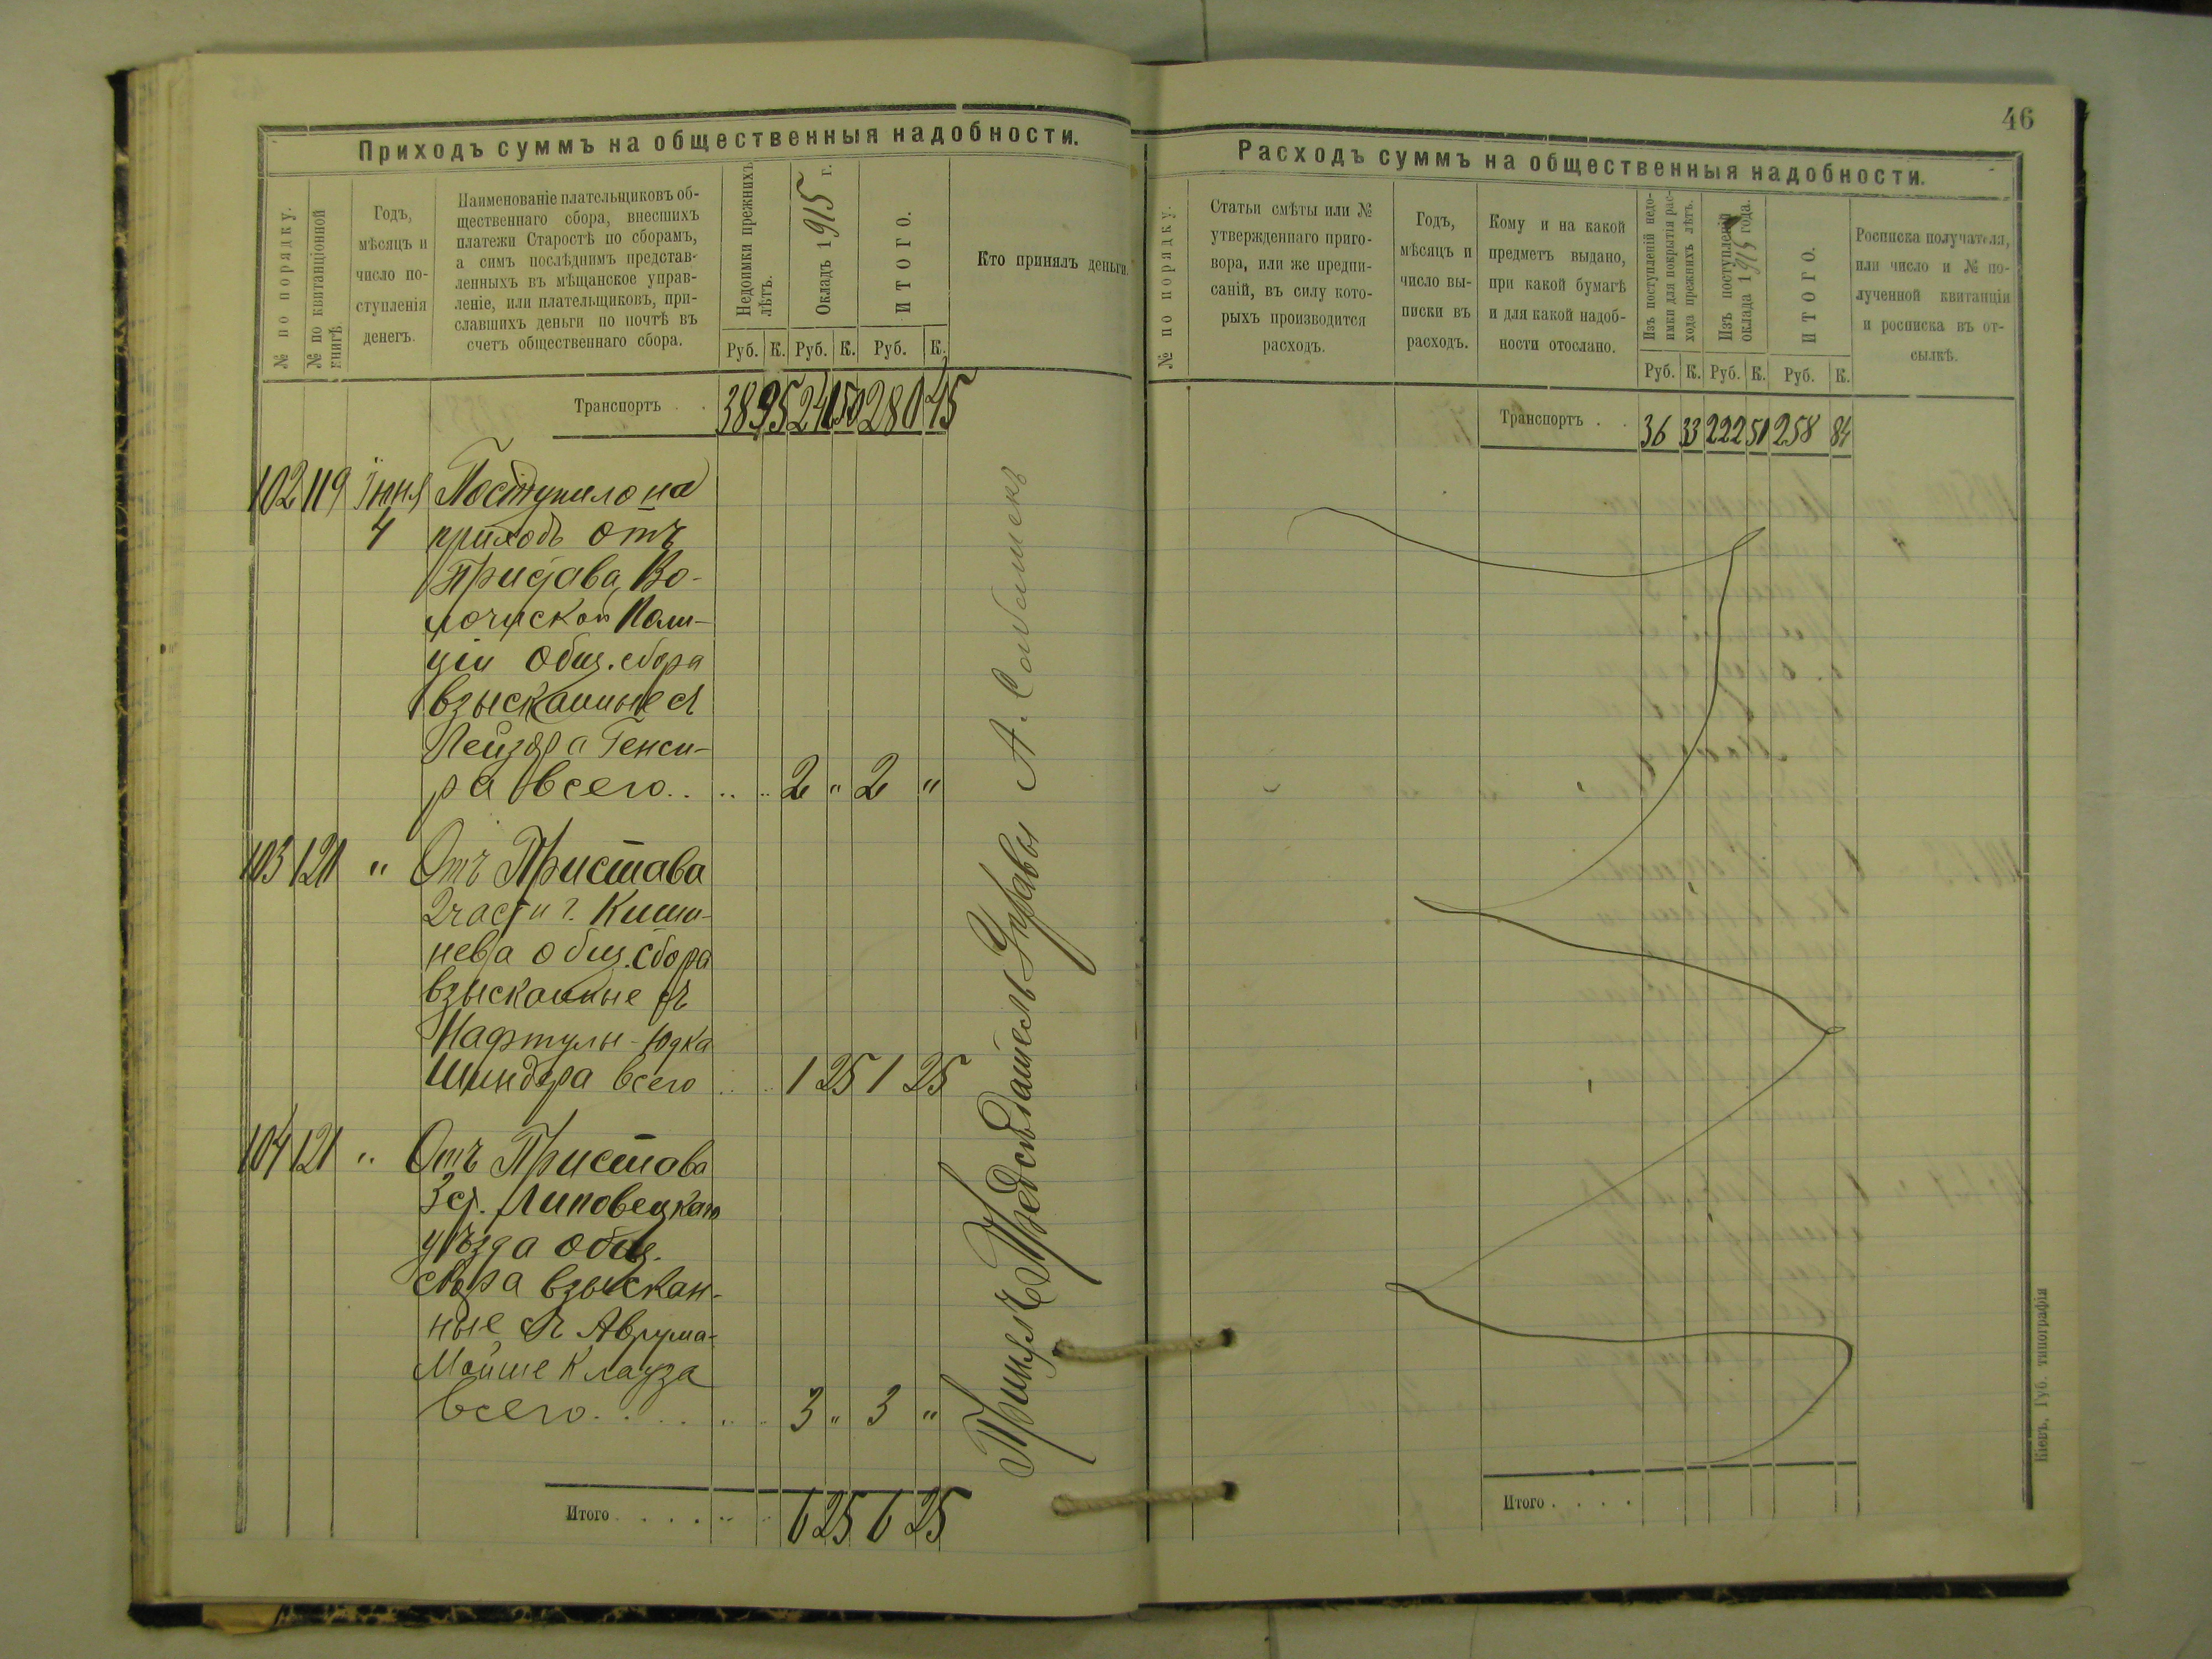 Приходъ суммъ на общественныя надобности.
№ по порядку.
№ по квитанціонной книгѣ.
Годъ,
мѣсяцъ и
число по-
ступленія
денегъ.
Наименованіе плательщиковъ об-
щественнаго сбора, внесшихъ
платежи Старостѣ по сборамъ,
а симъ послѣднимъ представ-
ленныхъ въ мѣщанское управ-
леніе, или плательщиковъ, при-
славшихъ деньги по почтѣ въ
счетъ общественнаго сбора.
Недоимки прежнихъ
лѣтъ.
Окладъ 1915 г.
ИТОГО.
Кто принялъ деньги.
Руб. К. Руб. К. Руб. К.
Транспортъ . . 38 95 241 50 280 45
102 119 Іюня Поступило на
4 приходъ отъ
Пристава Во-
лочиской Поли-
ціи общ. сбора
взысканные съ
Лейзера Генси-
ра всего . . . . . 2 " 2 "
103 120 " Отъ Пристава
2 части г. Киши-
нева общ. сбора
взысканные съ
Нафтулы-Юдка
Шиндера всего . . . 1 25 1 25
104 121 " Отъ Пристава
3 ст. Липовецкаго
уѣзда общ.
сбора взыскан-
ные съ Аврума-
Мойше Клауза
всего . . . . . . . 3 " 3 "
Итого . . . . . . 6 25 6 25
Принялъ Предсѣдатель Управы А.
46
Расходъ суммъ на общественныя надобности.
№ по порядку.
Статьи смѣты или №
утвержденнаго приго-
вора, или же предпи-
саній, въ силу кото-
рыхъ производится
расходъ.
Годъ,
мѣсяцъ и
число вы-
писки въ
расходъ.
Кому и на какой
предметъ выдано,
при какой бумагѣ
и для какой надоб-
ности отослано.
Изъ поступленій недо-
имки для покрытія рас-
хода прежнихъ лѣтъ.
Изъ поступленій
оклада 1915 года.
ИТОГО.
Росписка получателя,
или число и № по-
лученной квитанціи
и росписка въ от-
сылкѣ.
Руб. К. Руб. К. Руб. К.
Транспортъ . . 36 33 222 51 258 84
Итого . . . .
Кіевъ, Губ. типографія